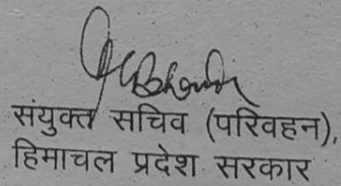 संयुक्त सचिव (परिवहन),
हिमाचल प्रदेश सरकार